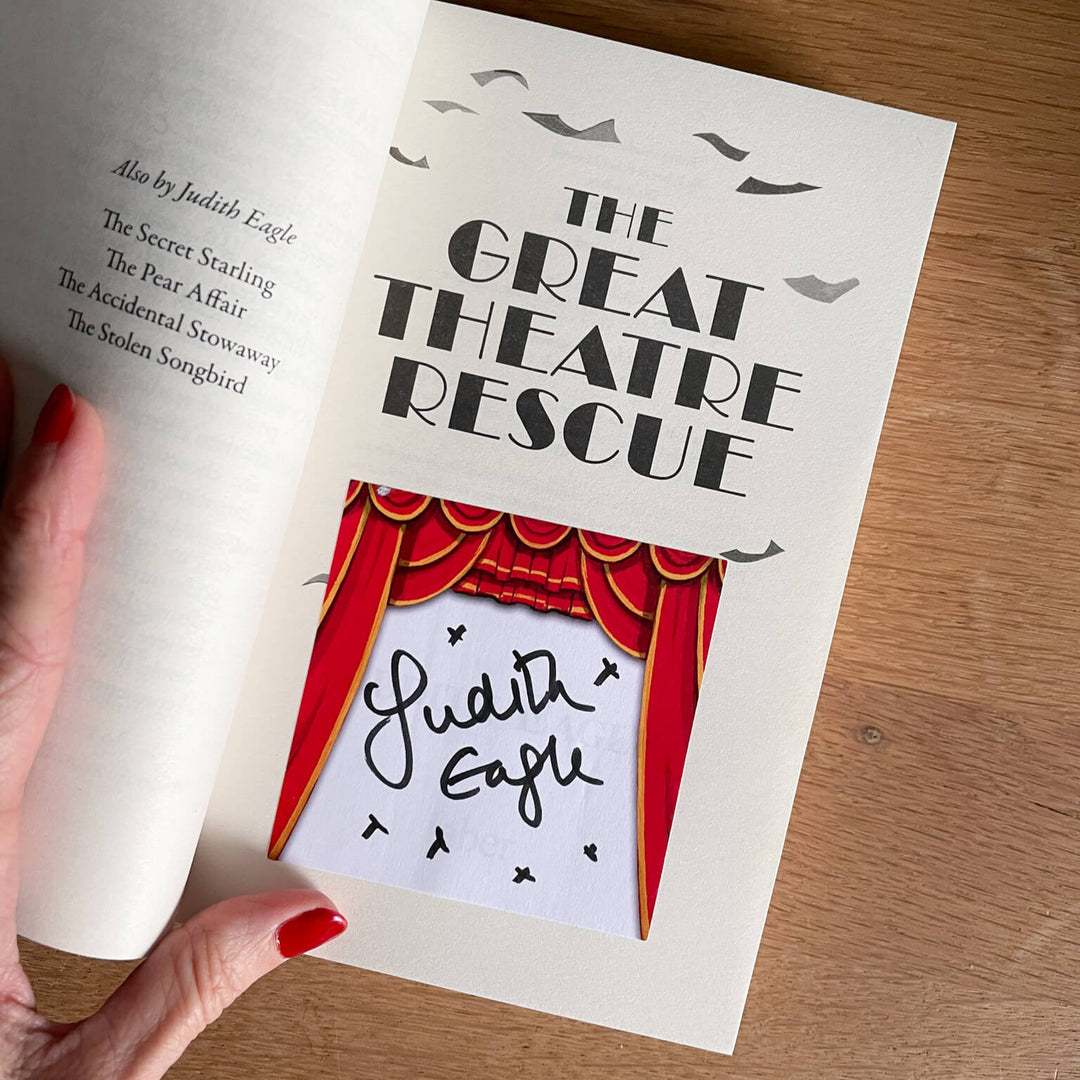 Also by Judith Eagle
The Secret Starling
The Pear Affair
The Accidental Stowaway
The Stolen Songbird
THE
GREAT
THEATRE
RESCUE
Judith
Eagle